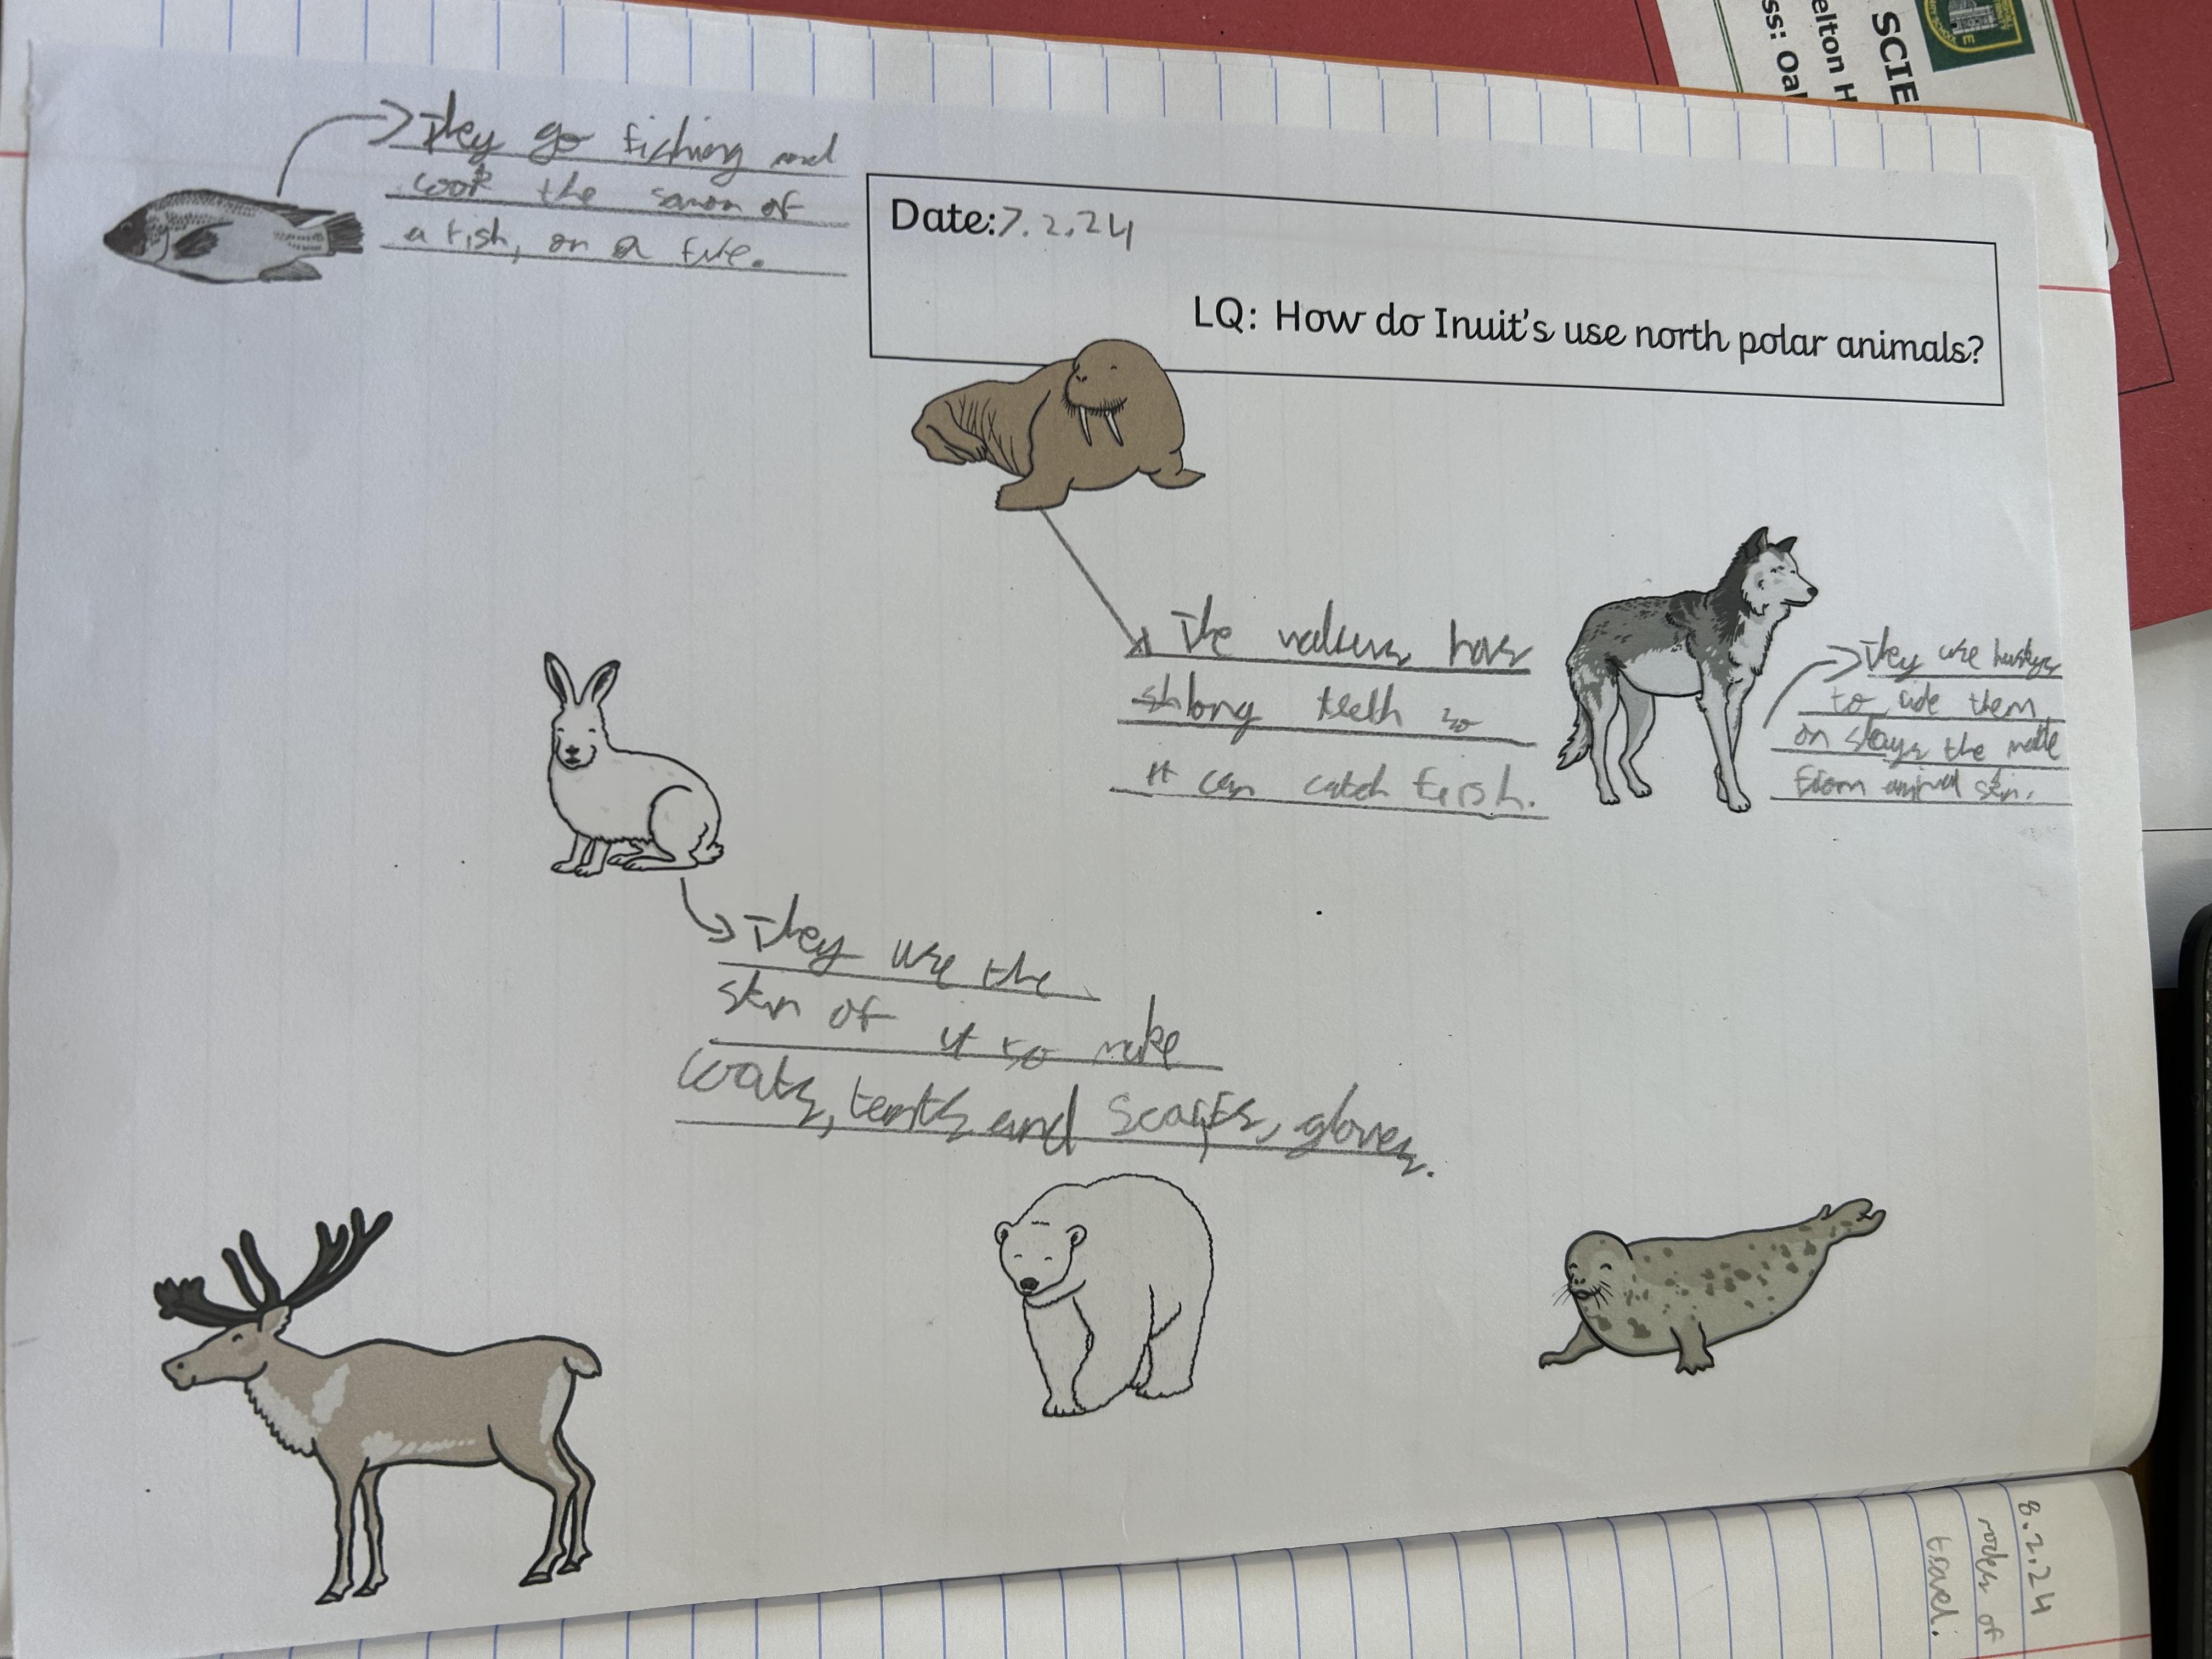 They go fishing and
cook the samon of
a fish, on a fire.
Date: 7.2.24
LQ: How do Inuit's use north polar animals?
The walurs has
strong teeth so
it can catch firsh.
They use huskys
to ride them
on slays the made
from animal skin.
They use the
skin of it to make
coats, tents and scarfs, gloves.
SCIE
elton H
ss: Oal
8.2.24
modes of
travel.